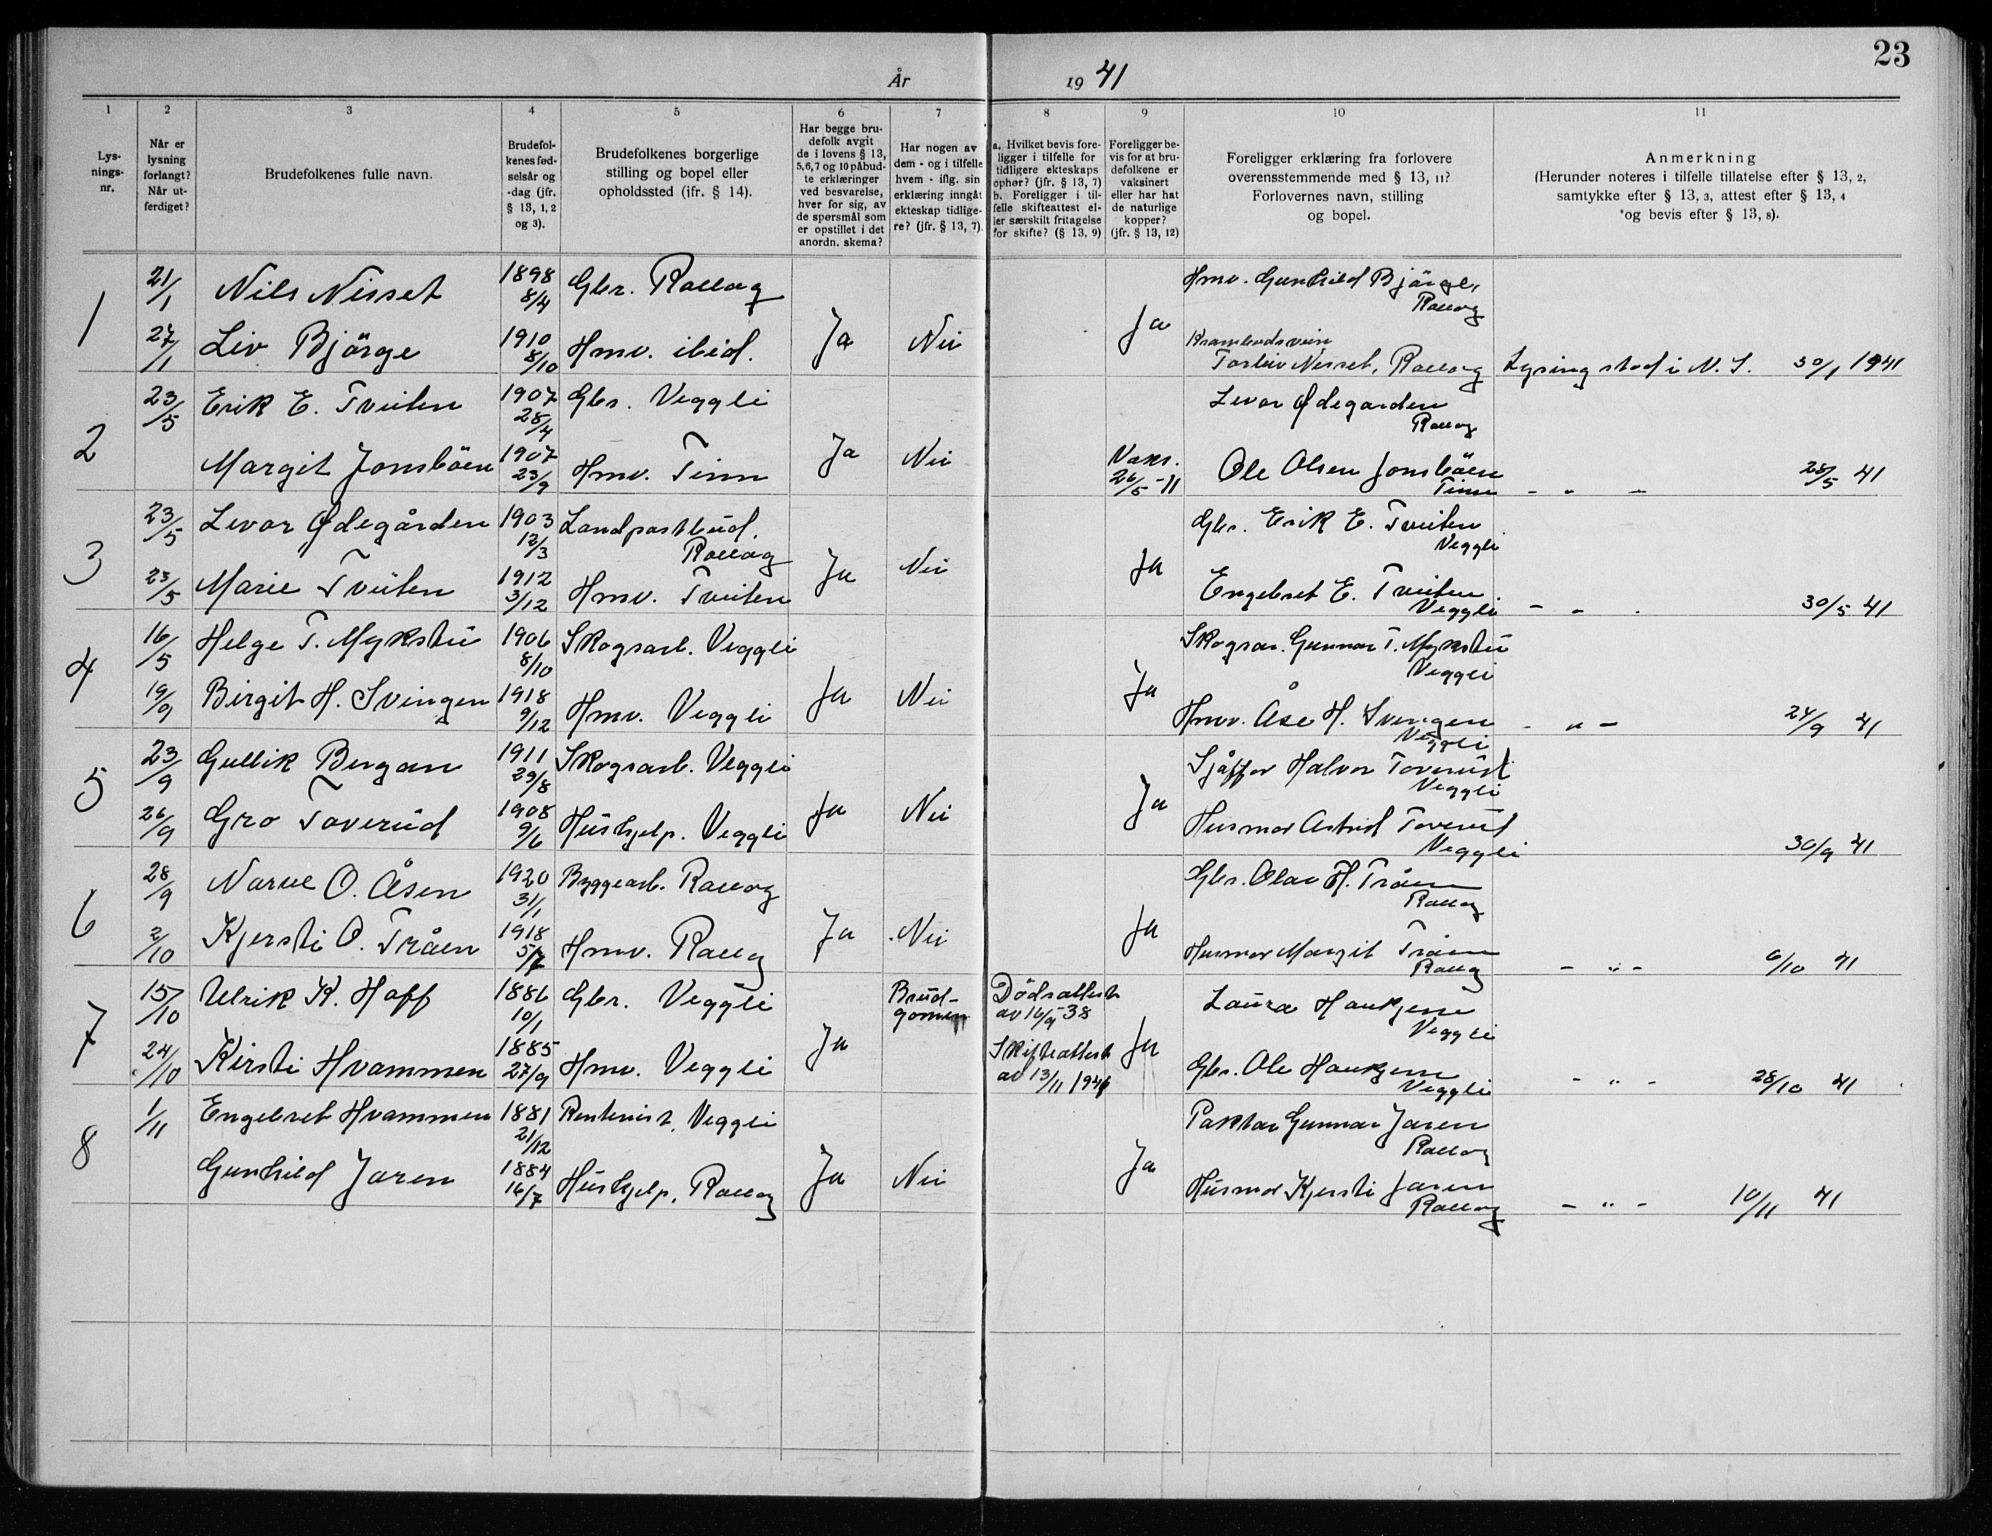 23
År 19 41
1 2 3 4 5 6 7 8 9 10 11
Lys-
nings-
nr.
Når er
lysning
forlangt?
Når ut-
ferdiget?
Brudefolkenes fulle navn.
Brudefol-
kenes fød-
selsår og
-dag (jfr.
§ 13, 1, 2
og 3).
Brudefolkenes borgerlige
stilling og bopel eller
opholdssted (jfr. § 14).
Har begge bru-
defolk avgit
de i lovens § 13,
5,6,7 og 10 påbud-
te erklæringer
ved besvarelse,
hver for sig, av
de spørsmål som
er opstillet i det
anordn. skema?
Har nogen av
dem - og i tilfelle
hvem - iflg. sin
erklæring inngåt
ekteskap tidlige-
re? (jfr. § 13, 7).
a. Hvilket bevis fore-
ligger i tilfelle for
tidligere ekteskaps
ophør? (jfr. § 13, 7)
b. Foreligger i til-
felle skifteattest el-
ler særskilt fritagelse
for skifte? (§ 13, 9)
Foreligger be-
vis for at bru-
defolkene er
vaksinert
eller har hat
de naturlige
kopper?
(jfr. § 13, 12)
Foreligger erklæring fra forlovere
overensstemmende med § 13, 11?
Forlovernes navn, stilling
og bopel.
Anmerkning
(Herunder noteres i tilfelle tillatelse efter § 13, 2,
samtykke efter § 13, 3, attest efter § 13, 4
og bevis efter § 13, 8).
1 21/1 Nils Nisset 1898 8/4 Gbr. Rollag Hmv. Gunhild Bjørge, Rollag
27/1 Liv Bjørge 1910 8/10 Hmv. ibid. Ja Nei Ja Torleiv Nisset, Rollag Lysing stod i N. S. 30/1 1941
2 23/5 Erik E. Tveiten 1907 28/4 Gbr. Veggli Levor Ødegarden Rollag
Margit Jonsbøen 1907 23/9 Hmv. Tinn Ja Nei Vaks. 26/5-11 Ole Olsen Jonsbøen Tinn - " - 28/5 41
3 23/5 Levor Ødegården 1903 12/3 Landpostbud. Rollag Gbr. Erik E. Tveiten Veggli
23/5 Marie Tveiten 1912 3/12 Hmv. Tveiten Ja Nei Ja Engebret E. Tveiten Veggli - " - 30/5 41
4 16/5 Helge T. Mykstu 1906 8/10 Skogsarb. Veggli Skogsar. Gunnar T. Mykstu Veggli
19/9 Birgit H. Svingen 1918 9/12 Hmv. Veggli Ja Nei Ja Hmv. Åse H. Svingen Veggli - " - 24/9 41
5 23/9 Gullik Bergan 1911 29/8 Skogsarb. Veggli Sjåffør Halvor Toverud Veggli
26/9 Gro Toverud 1908 9/6 Hushjelp. Veggli Ja Nei Ja Husmor Astrid Toverud Veggli 30/9 41
6 28/9 Narve O. Åsen 1920 31/1 Byggearb. Rollag Gbr. Olav H. Tråen Rollag
2/10 Kjersti O. Tråen 1918 5/7 Hmv. Rollag Ja Nei Ja Husmor Margit Tråen Rollag - " - 6/10 41
7 15/10 Ulrik K. Hoff 1886 10/1 Gbr. Veggli Brud-
gomen Dødsattest
av 16/9 38 Laura Haukjem Veggli
24/10 Kirsti Hvammen 1885 27/9 Hmv. Veggli Ja Skifteattest
av 13/11 1941 Ja Gbr. Ole Haukjem Veggli - " - 28/10 41
8 1/11 Engebret Hvammen 1881 21/12 Rentenist, Veggli Paktar Gunnar Jaren Rollag
Gunhild Jaren 1884 16/7 Hushjelp, Rollag Ja Nei Ja Husmor Kjersti Jaren Rollag - " - 10/11 41